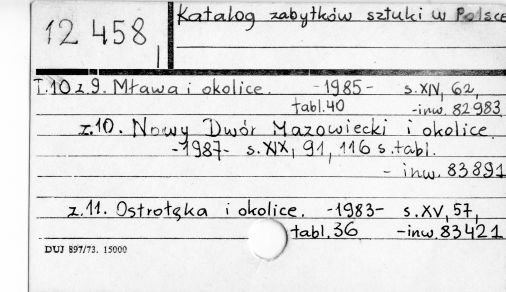 12 458
Katalog zabytków sztuki w Polsce
T.10 z 9. Mława i okolice. -1985- s.XIV, 62,
tabl.40 -inw. 82983
z.10. Nowy Dwór Mazowiecki i okolice.
-1987- s. XIX, 91, 116 s.tabl.
- inw. 83891
z.11. Ostrołęka i okolice. -1983- s.XV, 57,
tabl.36 -inw. 83421
DUJ 897/73. 15000